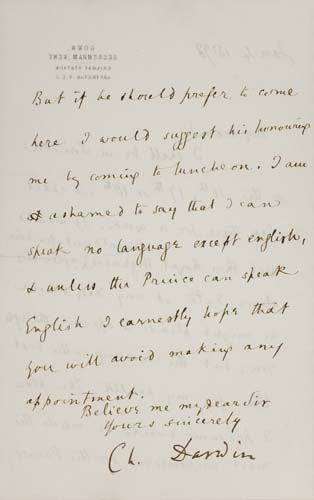 But if he should prefer to come
here I would suggest his honouring
me by coming to luncheon. I am
ashamed to say that I can
speak no language except english,
& unless the Prince can speak
English I earnestly hope that
you will avoid making any
appointment.
Believe me my dear sir
Yours sincerely
Ch. Darwin